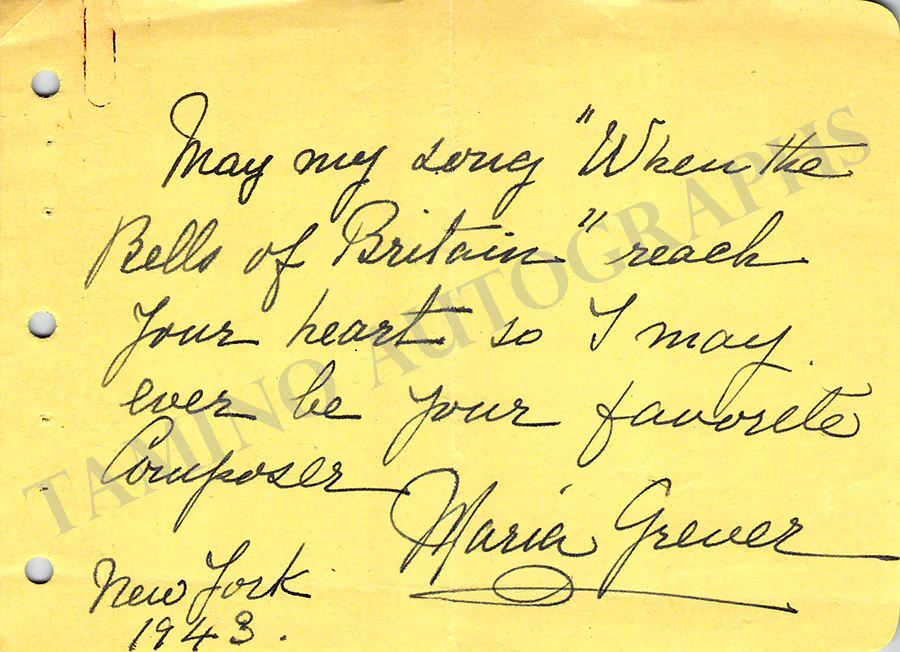 May my song "When the
Bells of Britain" reach
Your heart so I may
ever be your favorite
Composer
Maria Grever
New York
1943.
TAMINO AUTOGRAPHS